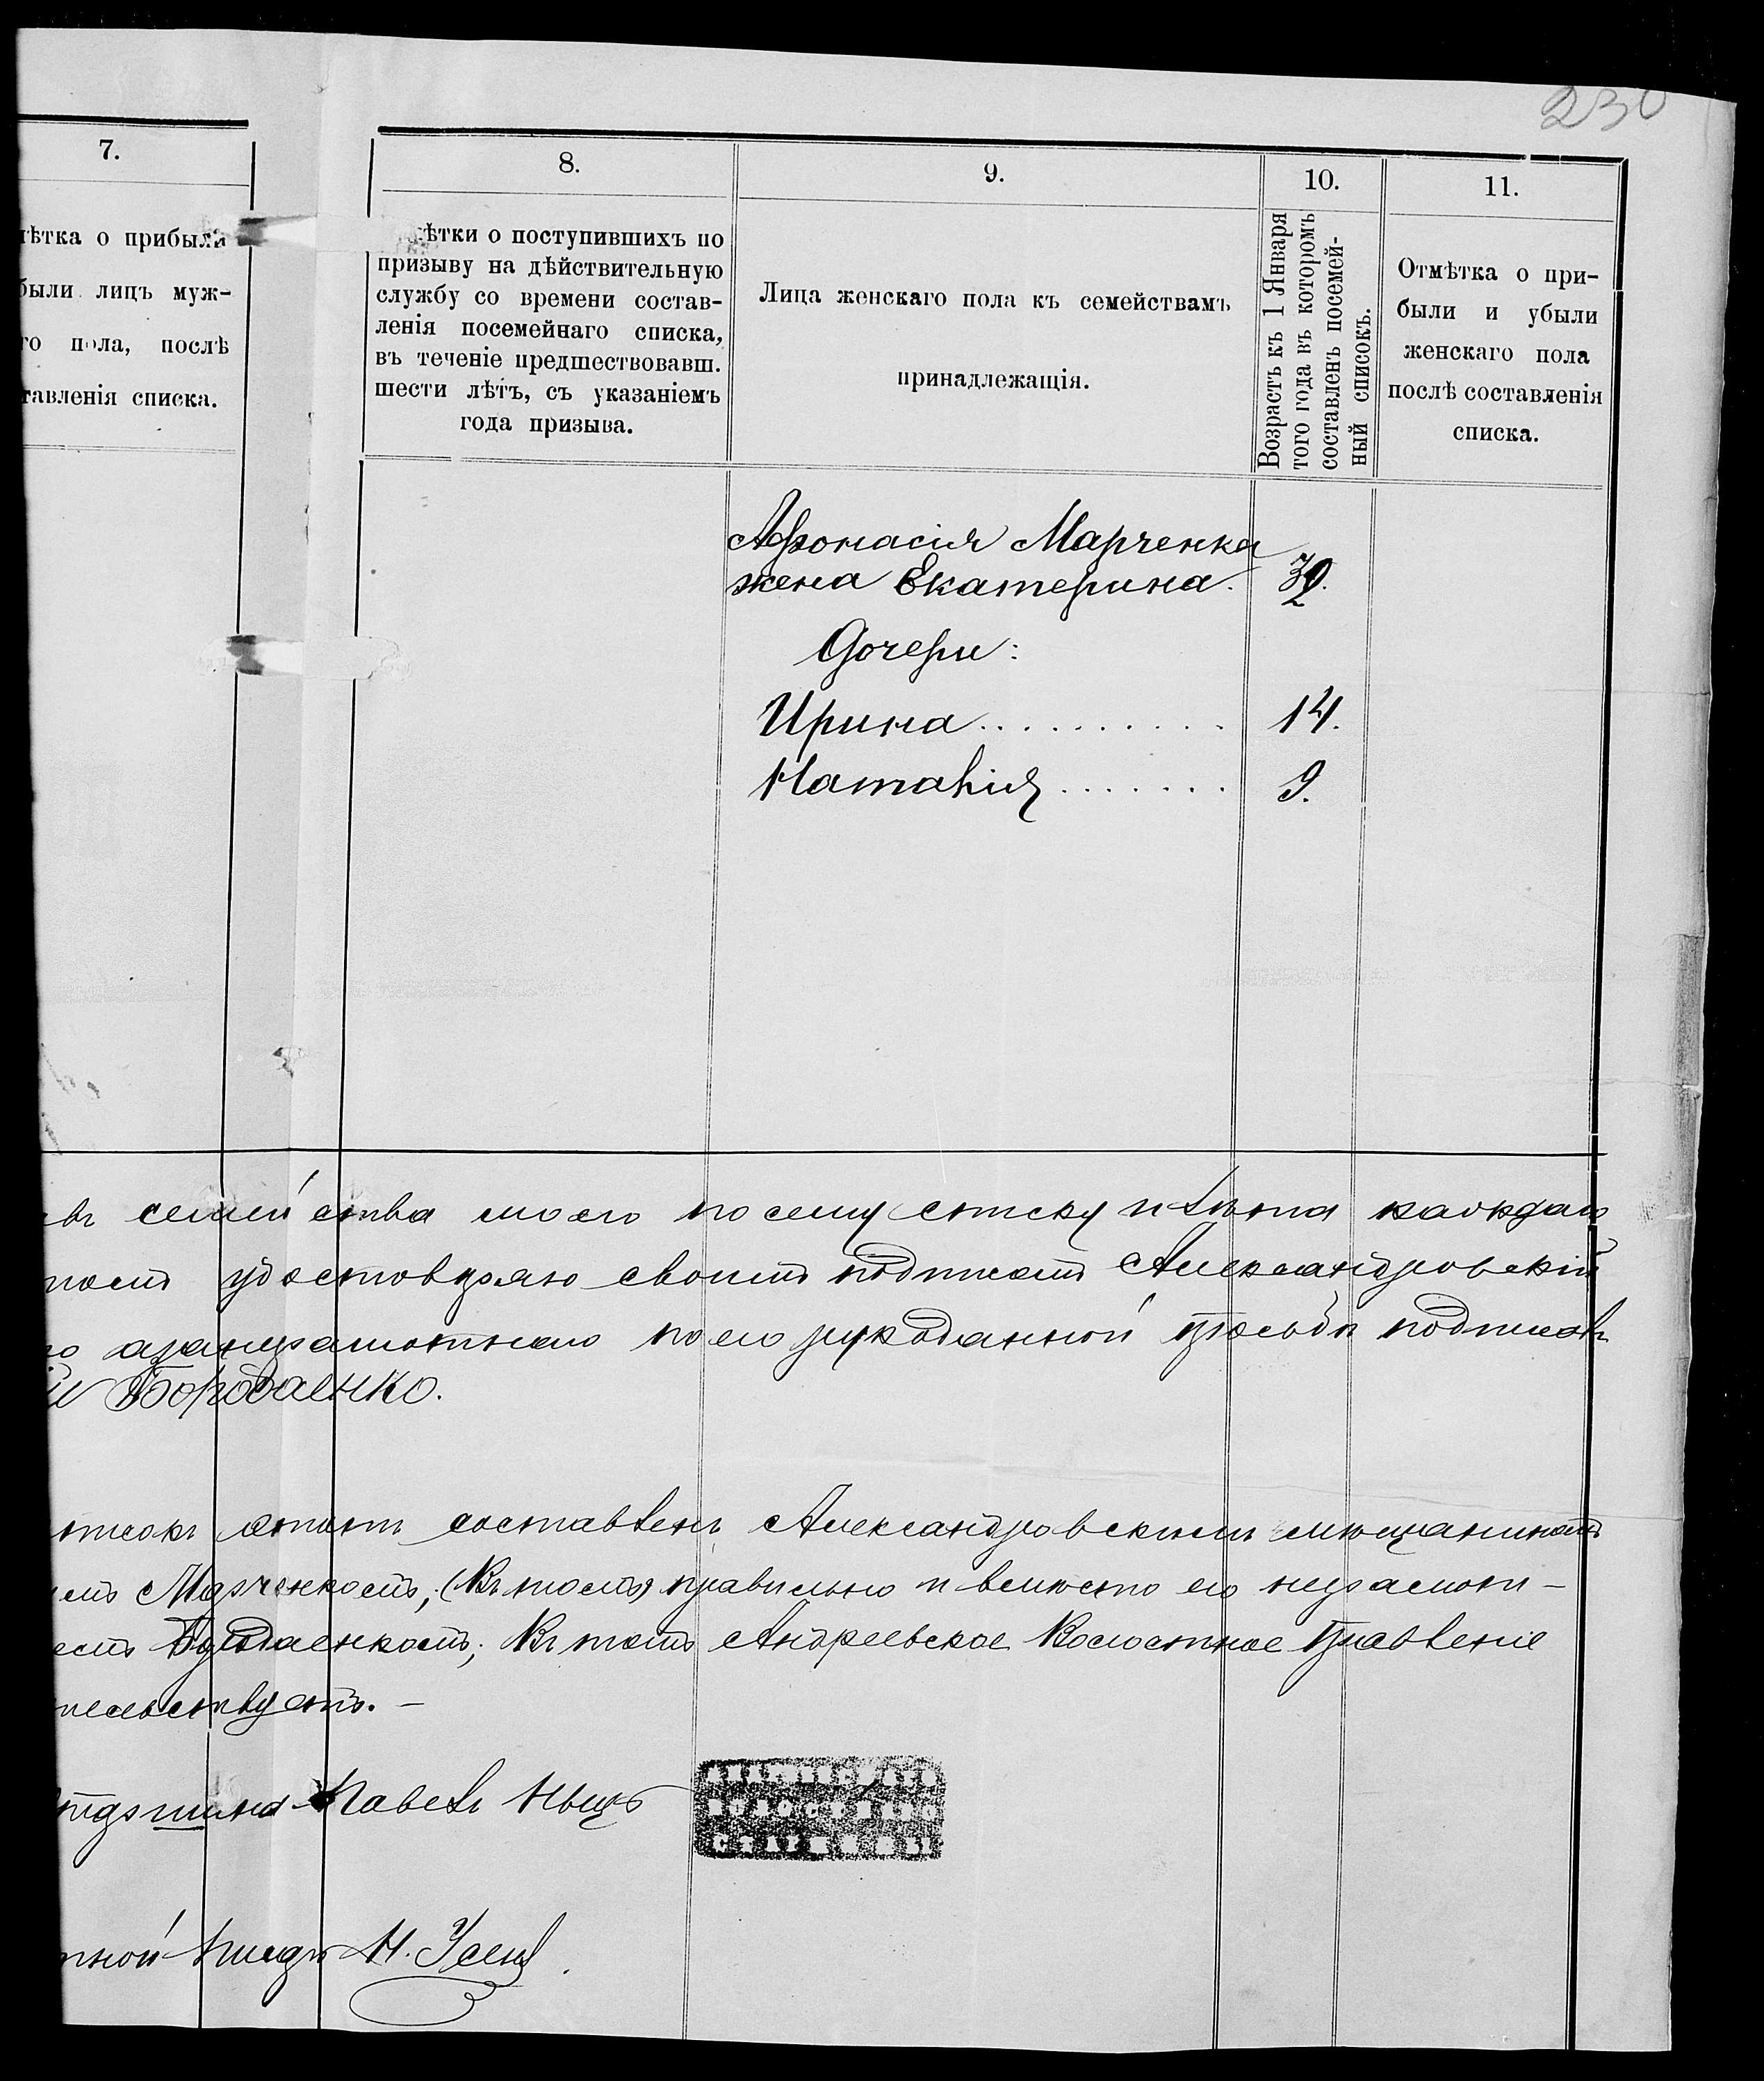 230
7.
тѣтка о прибыли
были лицъ муж-
го пола, послѣ
тавленія списка.
8.
ѣтки о поступившихъ по
призыву на дѣйствительную
службу со времени состав-
ленія посемейнаго списка,
въ теченіе предшествовавш.
шести лѣтъ, съ указаніемъ
года призыва.
9.
Лица женскаго пола къ семействамъ
принадлежащія.
10.
Возрастъ къ 1 Января
того года въ которомъ
составленъ посемей-
ный списокъ.
11.
Отмѣтка о при-
были и убыли
женскаго пола
послѣ составленія
списка.
Афонасія Марченка
жена Екатерина.
Дочери:
Ирина.......... 14.
Наталія....... 9.
въ семейства моего по сему списку и лѣта каждаго
удостовѣряю своимъ подписомъ Александровскій
а за неграмотнаго по его рукоданной просьбѣ подписалъ
й Бородаенко.
писокъ этотъ составленъ Александровскимъ мѣщаниномъ
емъ Марченкомъ, (въ томъ) правильно и вмѣсто его неграмот-
Бородаенкомъ; въ томъ Андреевское Волостное Правленіе
тельствуетъ.-
Старшина Павелъ
тной Писарь Н.
ВОЛОСТНОГО
СТАРШИНЫ